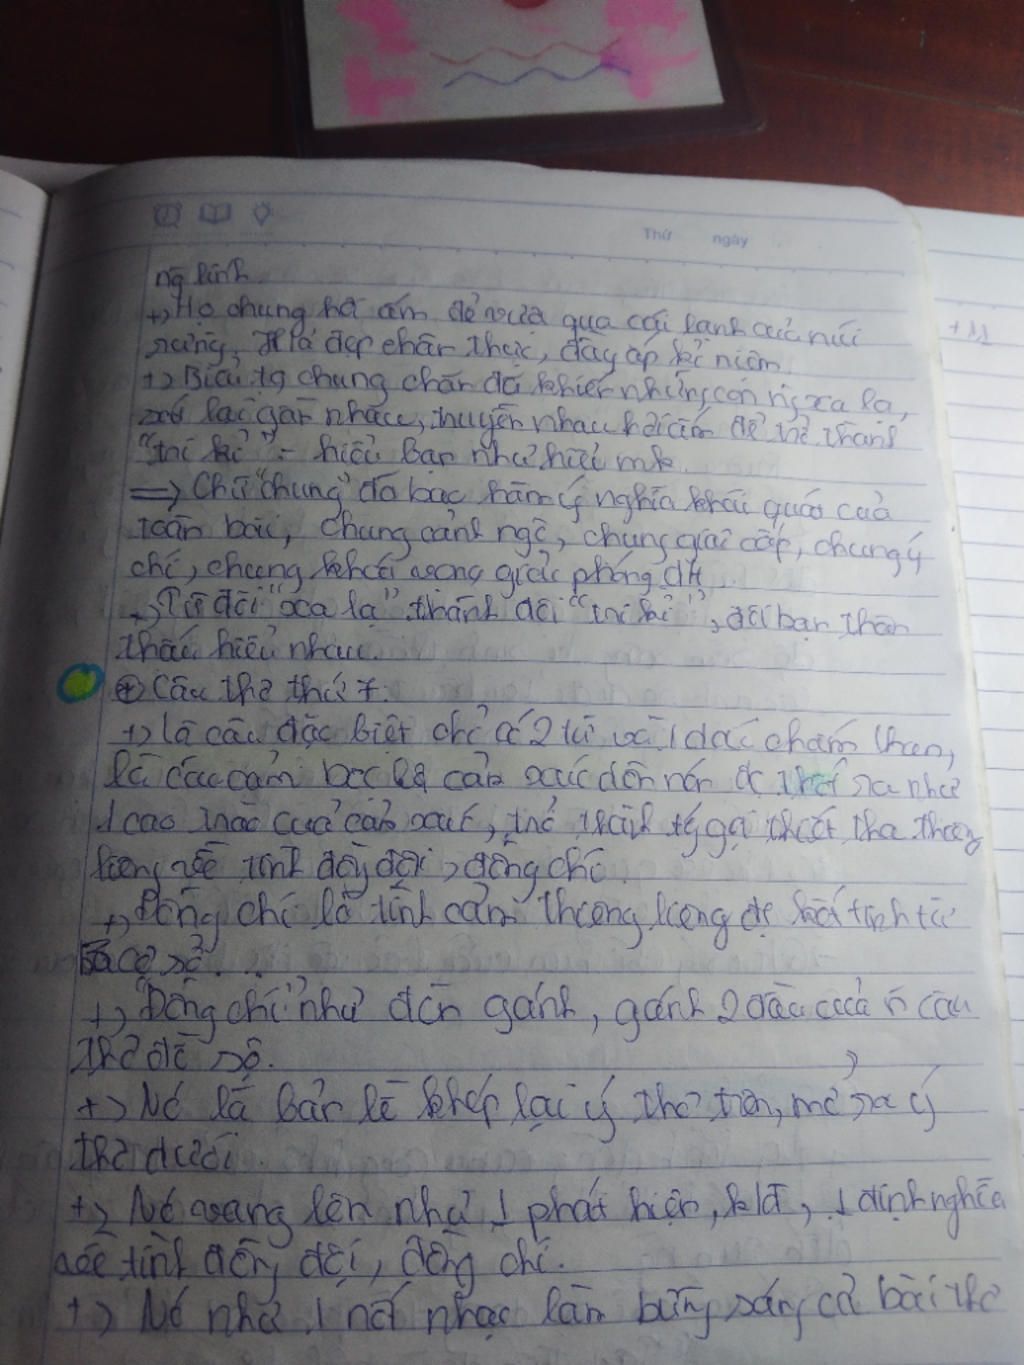 Thứ ngày
ng lính.
+) Họ chung hơi ấm để vượt qua cái lạnh của núi
rừng, là đẹp chân thực, đầy ắp kỉ niệm.
+) Bởi tg chung chăn đã khiến những con ng xa lạ,
xó lại gần nhau, truyền nhau hơi ấm để trở thành
"tri kỉ" - hiểu bạn như hiểu mk.
=> Chữ "chung" đã bao hàm ý nghĩa khái quát của
toàn bài, chung cảnh ngộ, chung giai cấp, chung ý
chí, chung khát vọng giải phóng đn.
-> Từ đôi "xa lạ" thành đôi "tri kỉ", đôi bạn thân
thấu hiểu nhau.
+ Câu thơ thứ 7:
+) là câu đặc biệt chỉ có 2 từ và 1 dấu chấm than,
là câu cảm bộc lộ cảm xúc dồn nén đc thốt ra như
1 cao trào của cảm xúc, trở thành gọi thiết tha thương
tình đồng đội, đồng chí.
+) Đồng chí là tình cảm thương đc kết tinh từ
cơ sở...
+) "Đồng chí" như đòn gánh, gánh 2 đầu của câu
thơ đồ sộ.
+) Nó là bản lề khép lại ý thơ trên, mở ra ý
thơ dưới.
+) Nó vang lên như 1 phát hiện, k/đ, 1 định nghĩa
về tình đồng đội, đồng chí.
+) Nó như 1 nốt nhạc làm bừng sáng cả bài thơ